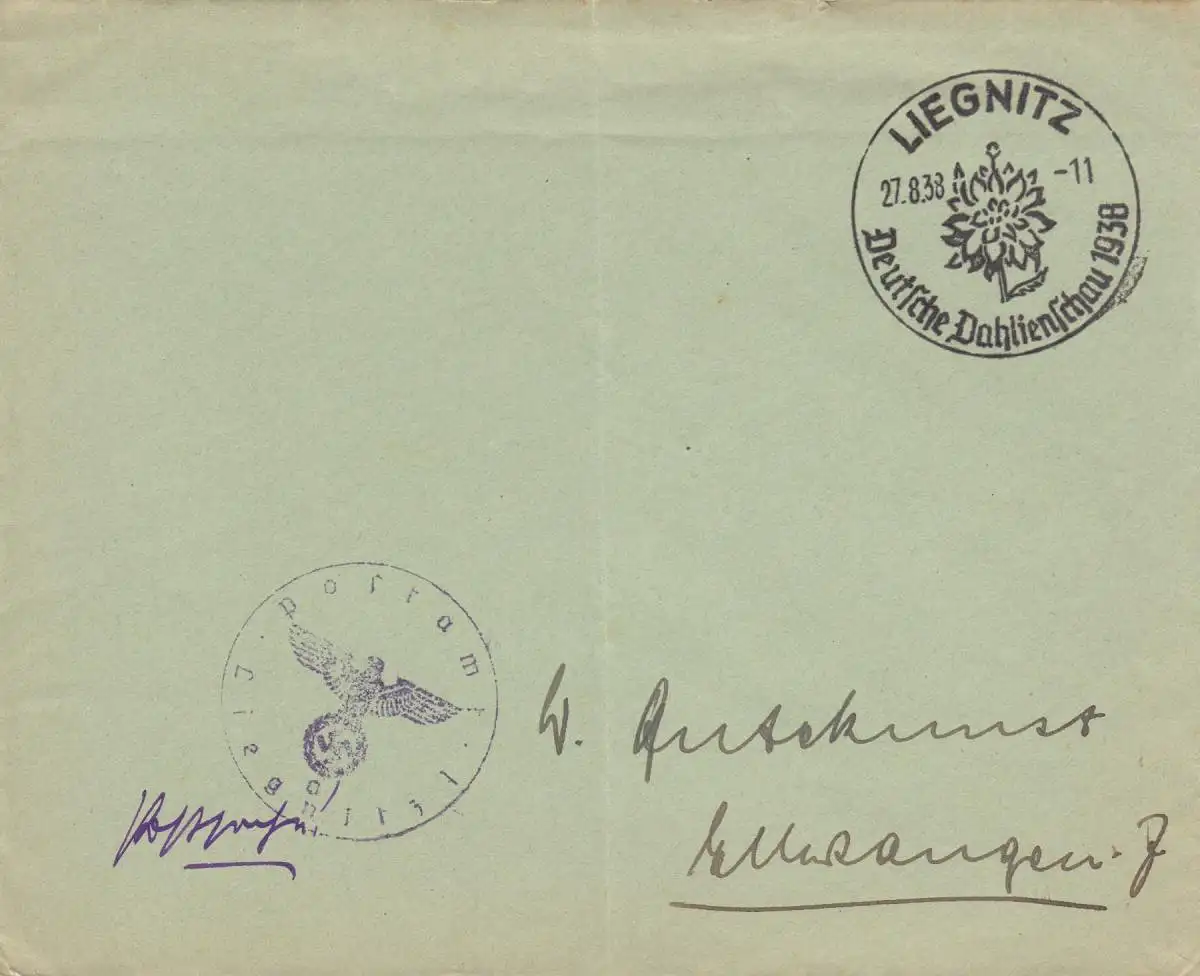 LIEGNITZ
27.8.38 -11
Deutsche Dahlienschau 1938
Postamt
Postsache
W. Gutekunst
Ellwangen-J